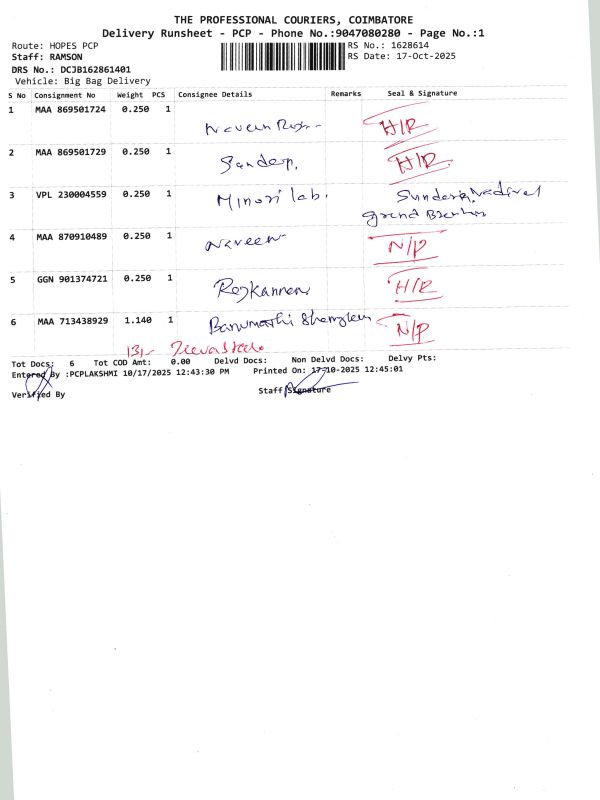 THE PROFESSIONAL COURIERS, COIMBATORE
Delivery Runsheet - PCP - Phone No.:9047080280 - Page No.:1
Route: HOPES PCP
RS No.: 1628614
Staff: RAMSON
RS Date: 17-Oct-2025
DRS No.: DCJB162861401
Vehicle: Big Bag Delivery
S No Consignment No Weight PCS Consignee Details Remarks Seal & Signature
1 MAA 869501724 0.250 1 Naveen H/R
2 MAA 869501729 0.250 1 Sandeep. H/R
3 VPL 230004559 0.250 1 Minori lab.
4 MAA 870910489 0.250 1 Naveen N/P
5 GGN 901374721 0.250 1 Rajkannan H/R
6 MAA 713438929 1.140 1 N/P
Tot Docs: 6 Tot COD Amt: 0.00 Delvd Docs: Non Delvd Docs: Delvy Pts:
Entered By :PCPLAKSHMI 10/17/2025 12:43:30 PM Printed On: 17-10-2025 12:45:01
Verified By Staff Signature